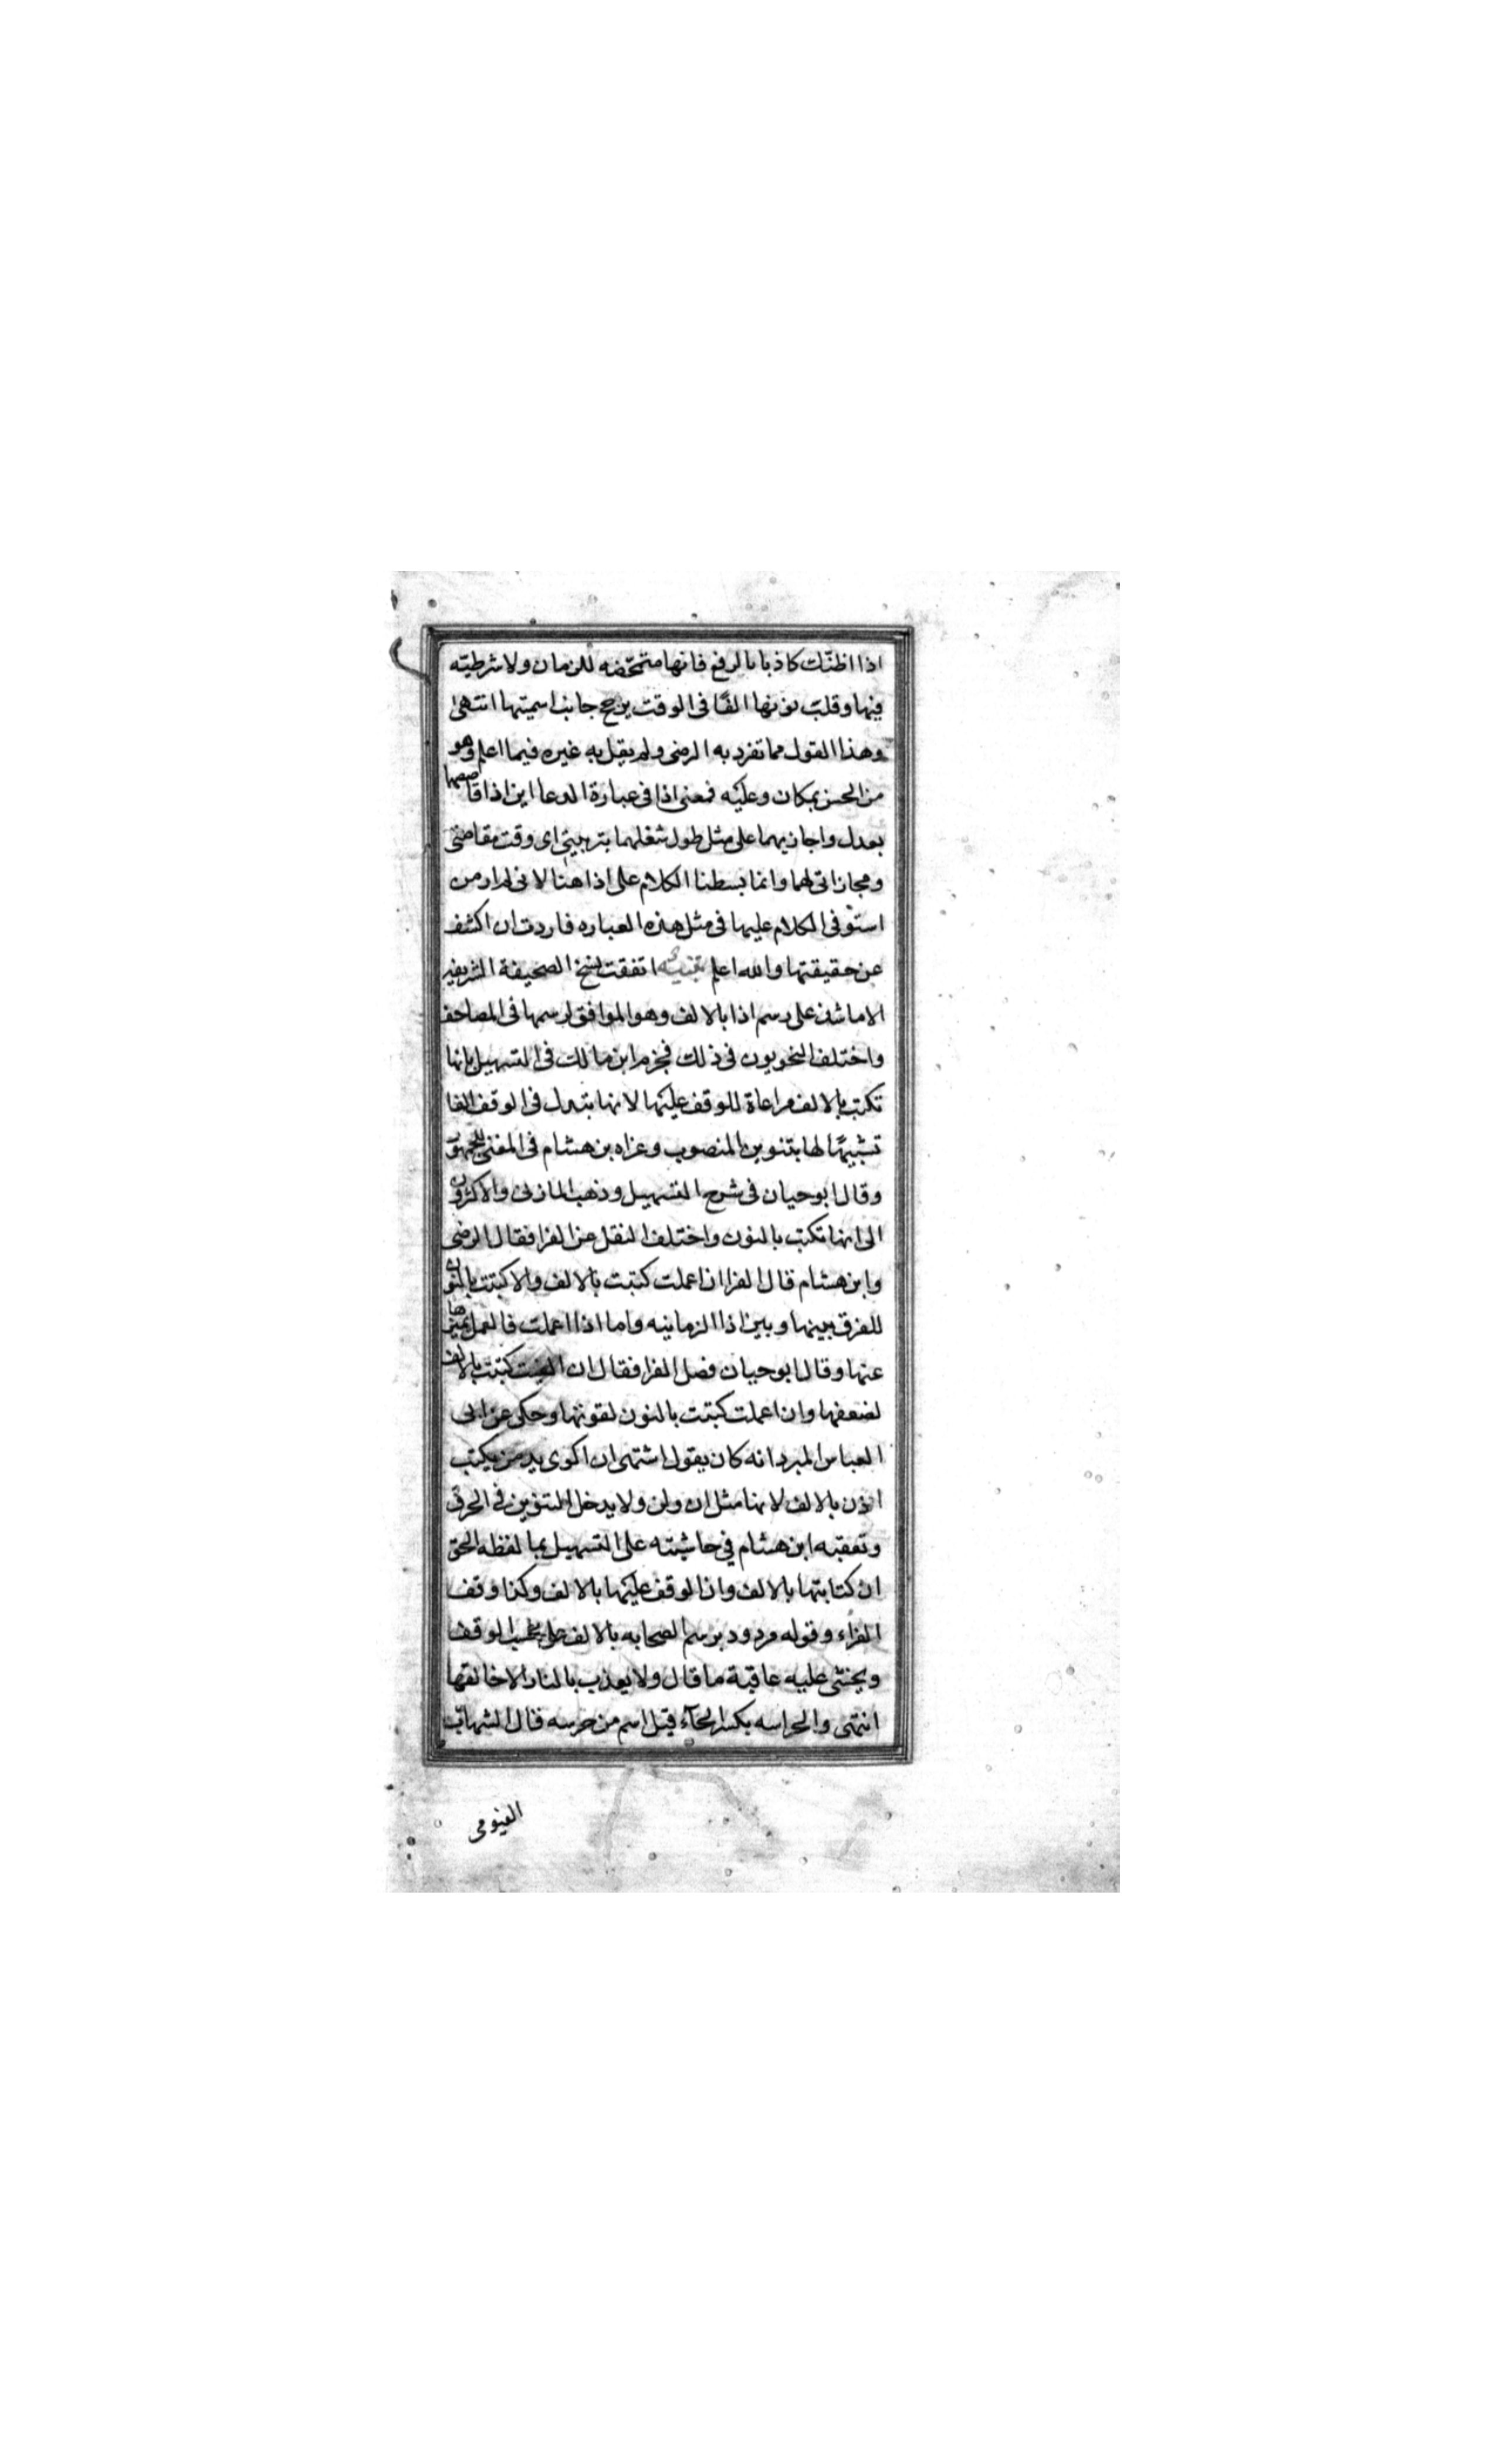 اذا اظنّك كاذبا بالرفع فانها متمحّضه للزمان ولا شرطيّه
فيها وقلب نونها الفًا فى الوقت يرجح جانب اسميتها انتهى
وهذا القول مما تفرد به الرضى ولم يقل به غيره فيما اعلم وهو
من الحسن بمكان وعليه فمعنى اذا فى عبارة الدعا اين اذا قاصصهما
بعدل واجازيهما على مثل طول شغلهما بتربيتى اى وقت مقاصتى
ومجازاتى لهما وانما بسطنا الكلام على اذا هنا لانى لم ار من
استوفى الكلام عليها فى مثل هذه العباره فاردت ان اكشف
عن حقيقتها والله اعلم تنبيه اتفقت نسخ الصحيفة الشريفه
الا ما شذ على رسم اذا بالالف وهو الموافق لرسمها فى المصاحف
واختلف النحويون فى ذلك فجزم ابن مالك فى التسهيل بانها
تكتب بالالف مراعاة للوقف عليها لانها تبدل فى الوقف الفا
تشبيهًا لها بتنوين المنصوب وعزاه بن هشام فى المغنى للجمهور
وقال ابو حيان فى شرح التسهيل وذهب المازنى والاكثرون
الى انها تكتب بالنون واختلف النقل عن الفرا فقال الرضى
وابن هشام قال الفرا ان اعملت كتبت بالالف والا كتبت بالنون
للفرق بينها وبين اذا الزمانيه واما اذا اعملت فالعمل يميزها
عنها وقال ابو حيان فصل الفرا فقال ان الغيت كتبت بالالف
لضعفها وان اعملت كتبت بالنون لقوتها وحكى عن ابى
العباس المبرد انه كان يقول اشتهى ان اكوى يد من يكتب
اذن بالالف لانها مثل ان ولن ولا يدخل التنوين فى الحرف
وتعقبه ابن هشام في حاشيته على التسهيل بما لفظه الحق
ان كتابتها بالالف وان الوقف عليها بالالف وكذا وقف
القراء وقوله مردود برسم الصحابه بالالف الوقف
ويخشى عليه عاقبة ما قال ولا يعذب بالنار الا خالقها
انتهى والحراسه بكسر الحآء قيل اسم من حرسه قال الشهاب
الفيومى